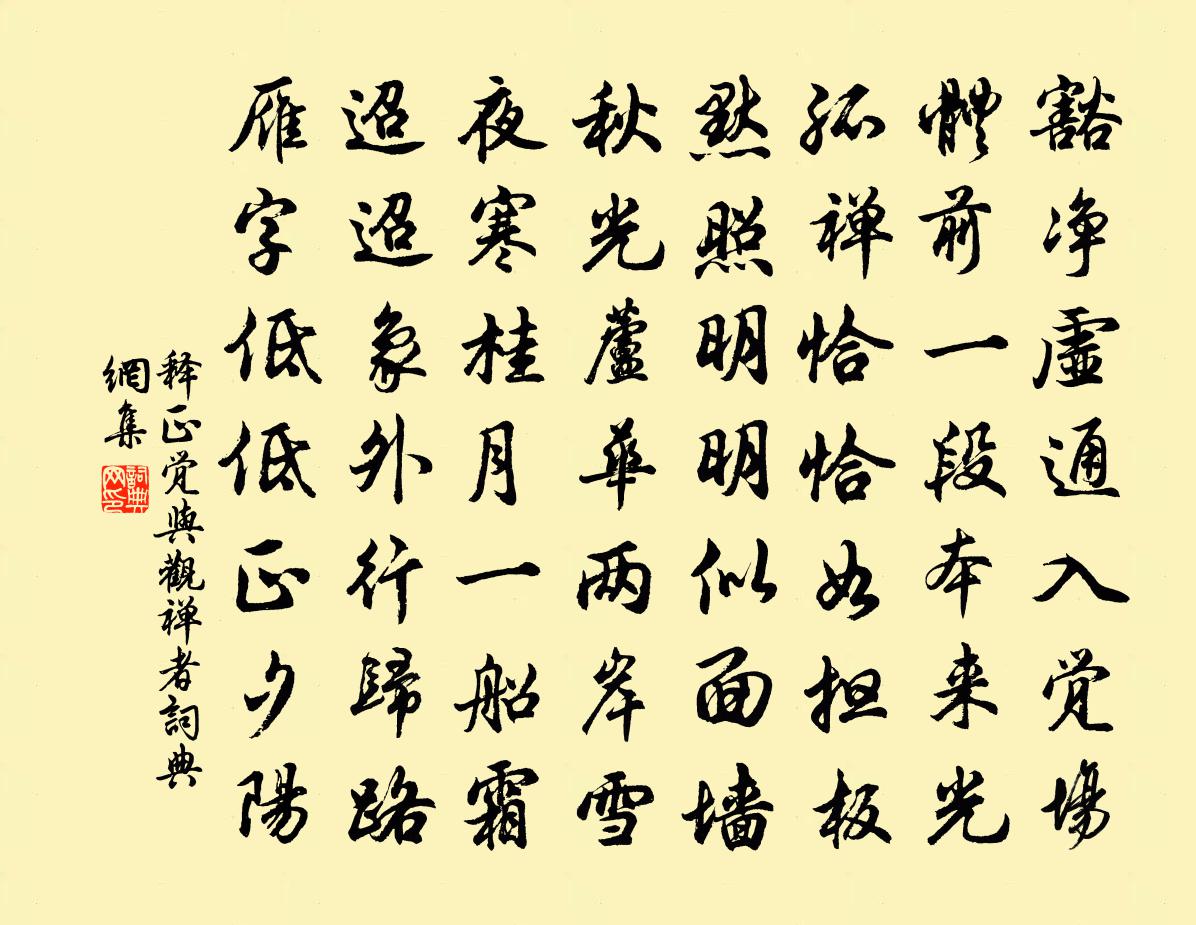 豁净虛通入觉場
體前一段本来光
孤禅恰恰如担板
默照明明似面墙
秋光蘆華两岸雪
夜寒桂月一船霜
迢迢象外行歸路
雁字低低正夕陽
释正觉與觀禅者詞典
網集
詞典
网印